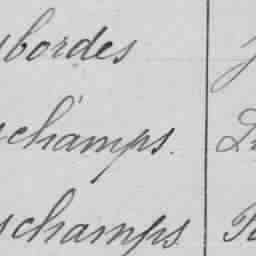 bordes
schamps.
schamps